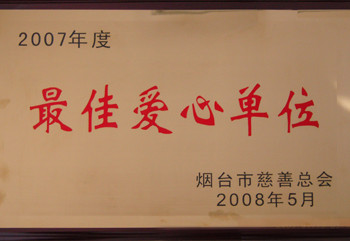 2007年度
最佳爱心单位
烟台市慈善总会
2008年5月